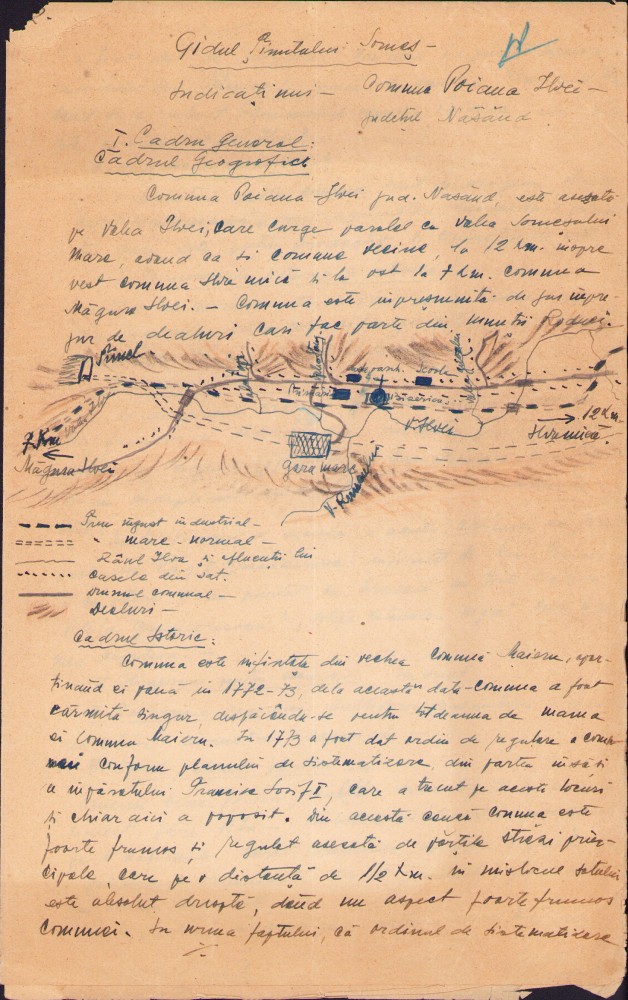 Gidul Ținutului Someș —
Indicațiuni — Comuna Poiana Ilvei —
județul Năsăud
I. Cadru General:
Cadrul Geografic
Comuna Poiana Ilvei jud. Năsăud, este așezată
pe Valea Ilvei, care curge paralel cu valea Someșului
Mare, având ca și comune vecine, la 12 km. înspre
vest comuna Ilva mică și la ost la 7 km. comuna
Măgura Ilvei. — Comuna este împresurată de jur împre-
jur de dealuri cari fac parte din munții Rodnei.
Tunel.
Școala
Primăria
Biserica
V. Ilvei
7 Km
Măgura Ilvei
gara mare
12 Km.
Ilva mică.
Tren îngust industrial —
" mare - normal —
Râul Ilva și afluenții lui
Casele din sat.
Drumul comunal —
Dealuri —
Cadrul Istoric:
Comuna este înființată din vechea comună Maieru, apar-
ținând ei până în 1772-73, dela această dată comuna a fost
cârmuită singur, despăcându-se pentru totdeauna de mama
ei Comuna Maieru. În 1773 a fost dat ordin de regulare a comu-
nei conform planului de sistematizare, din partea însăși
a împăratului Francisc Iosif II, care a trecut pe aceste locuri
și chiar aici a poposit. Din această cauză comuna este
foarte frumos și regulat așezată de părțile străzi prin-
cipale, care pe o distanță de 1 1/2 km. în mijlocul satului
este absolut dreaptă, dând un aspect foarte frumos
comunei. În urma faptului, că ordinul de sistematizare